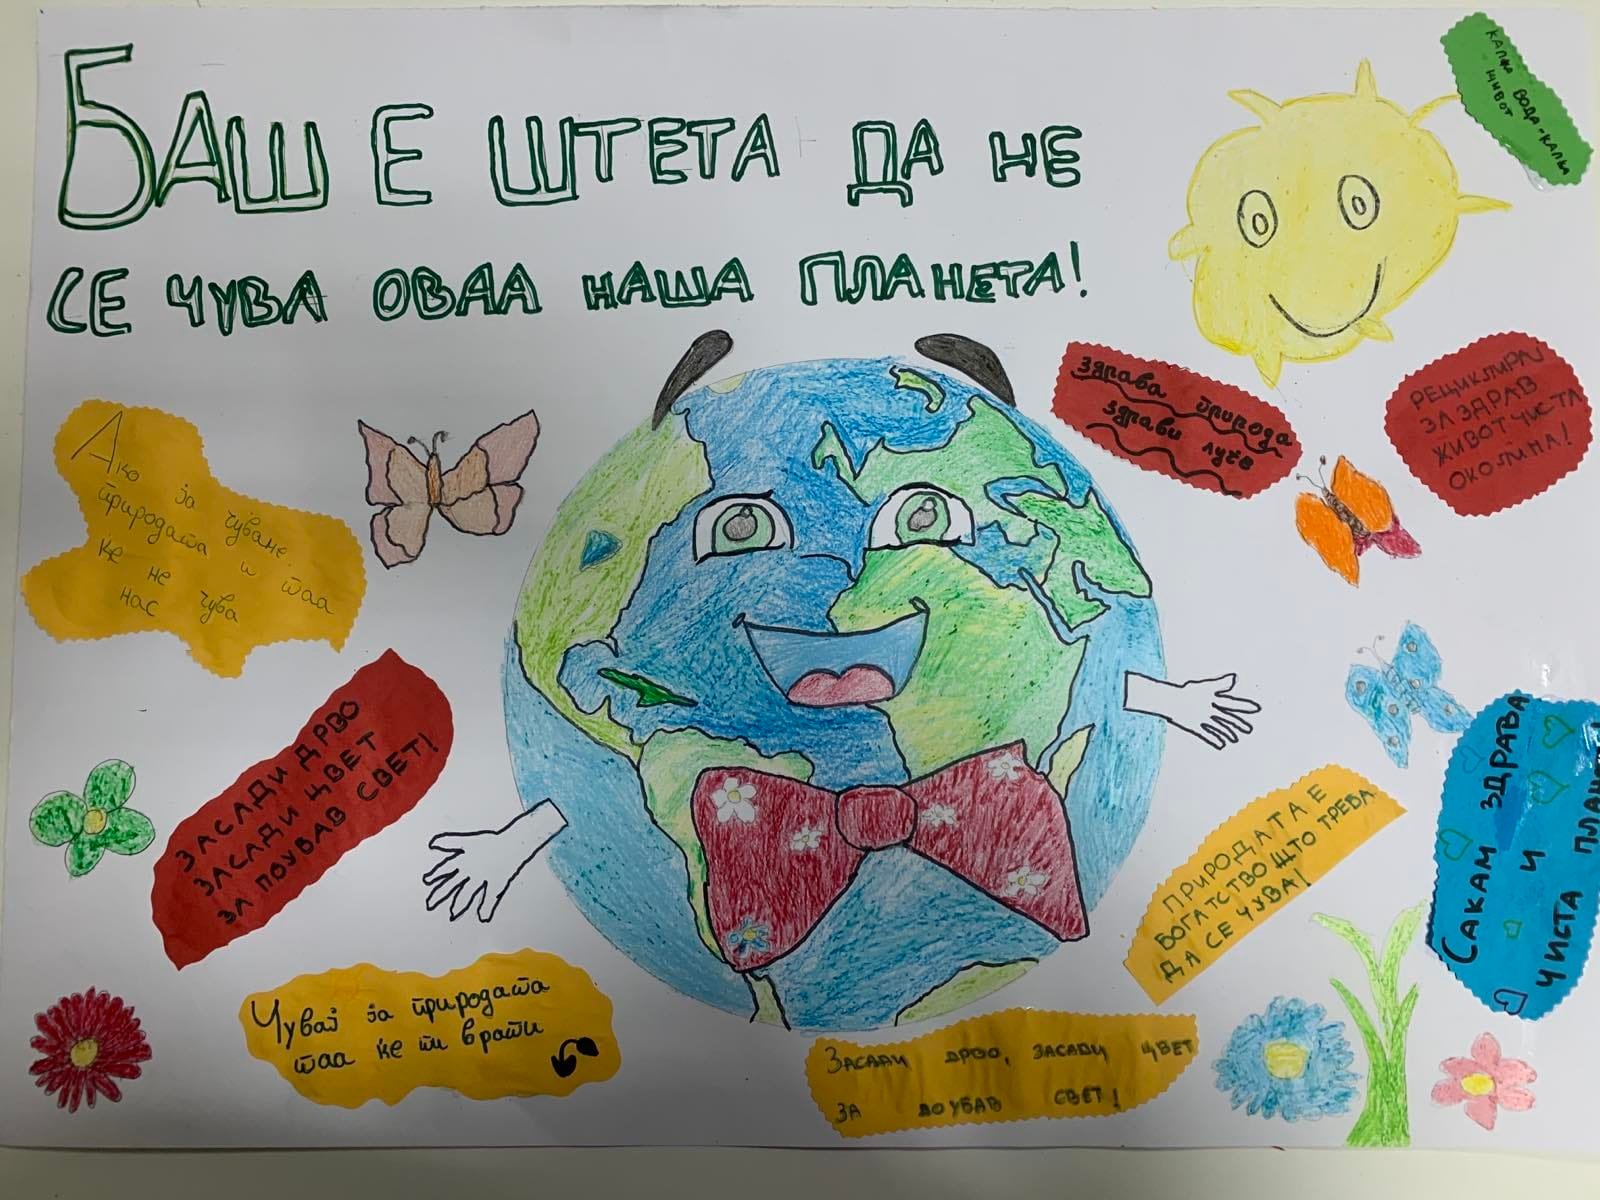 БАШ Е ШТЕТА ДА НЕ
СЕ ЧУВА ОВАА НАША ПЛАНЕТА!
КАПКА ВОДА-КАПКА
ЖИВОТ
здрава природа
здрави луѓе
РЕЦИКЛИРАЈ
ЗА ЗДРАВ
ЖИВОТ ЧИСТА
ОКОЛИНА!
Ако ја чуваме
природата и таа
ќе не чува
нас
ЗАСАДИ ДРВО
ЗАСАДИ ЦВЕТ
ЗА ПОУБАВ СВЕТ!
Чувај ја природата
таа ќе ти врати
ПРИРОДАТА Е
БОГАТСТВО ШТО ТРЕБА
ДА СЕ ЧУВА!
САКАМ ЗДРАВА
И
ЧИСТА ПЛАНЕТА!
ЗАСАДИ ДРВО, ЗАСАДИ ЦВЕТ
ЗА ПОУБАВ СВЕТ!